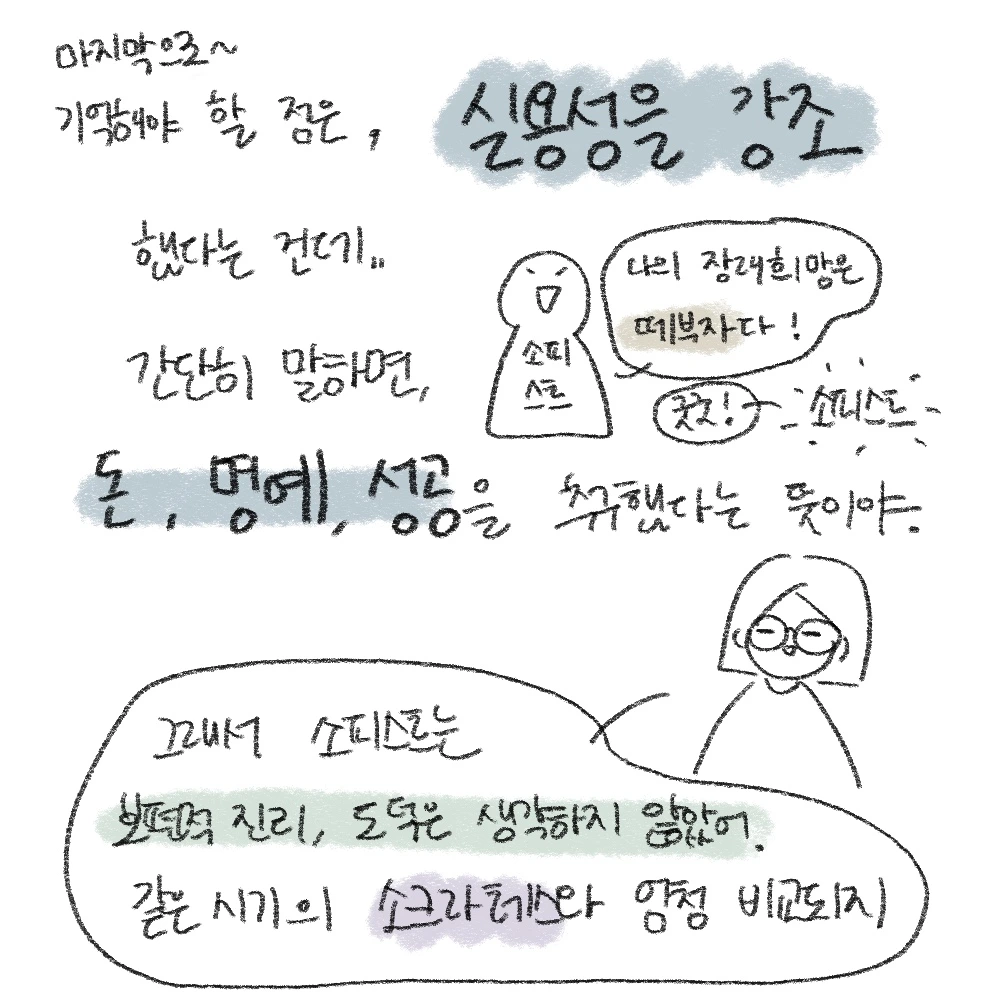 마지막으로~
기억해야 할 점은,
실용성을 강조
했다는 건데..
나의 장래희망은
떼부자다!
소피
스트
꿋꿋!
소피스트
간단히 말하면,
돈, 명예, 성공을 추구했다는 뜻이야.
그래서 소피스트는
보편적 진리, 도덕은 생각하지 않았어.
같은 시기의 소크라테스와 엄청 비교되지